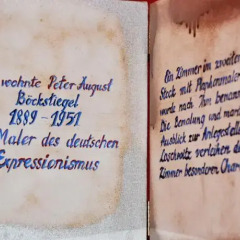 wohnte Peter August
Böckstiegel
1889-1951
Maler des deutschen
Expressionismus
Ein Zimmer im zweiten
Stock mit
wurde nach ihm benannt
Die Bemalung und
Ausblick zur
Loschwitz verleihen
Zimmer besonderen